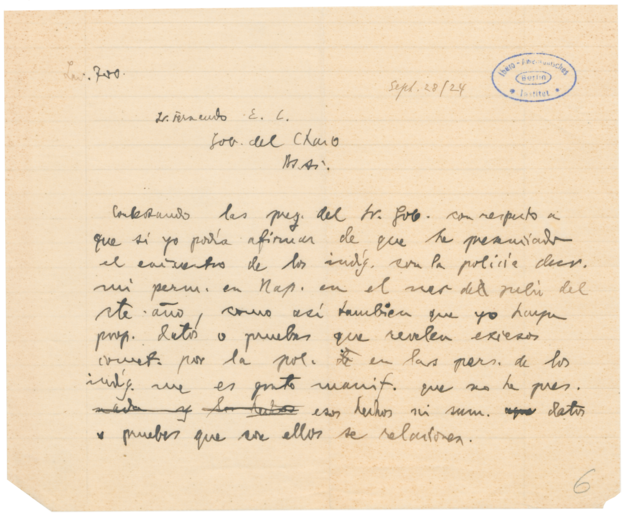 700.
Sept. 28/24
Ibero-Amerikanisches
Berlin
Institut
Dr. Fernando E. C.
Gob. del Chaco
Bs. As.
Contestando las preg. del Sr. Gob. con respecto a
que si yo podía afirmar de que he presenciado
el encuentro de los indíg. con la policía dur.
mi perm. en Nap. en el mes de julio del
cte. año, como así también que yo haya
prop. datos o pruebas que revelen excesos
comet. por la pol. en las pers. de los
indíg. me es grato manif. que no he pres.
nada y los hechos esos hechos ni sum. datos
o pruebas que con ellos se relacionen.
6